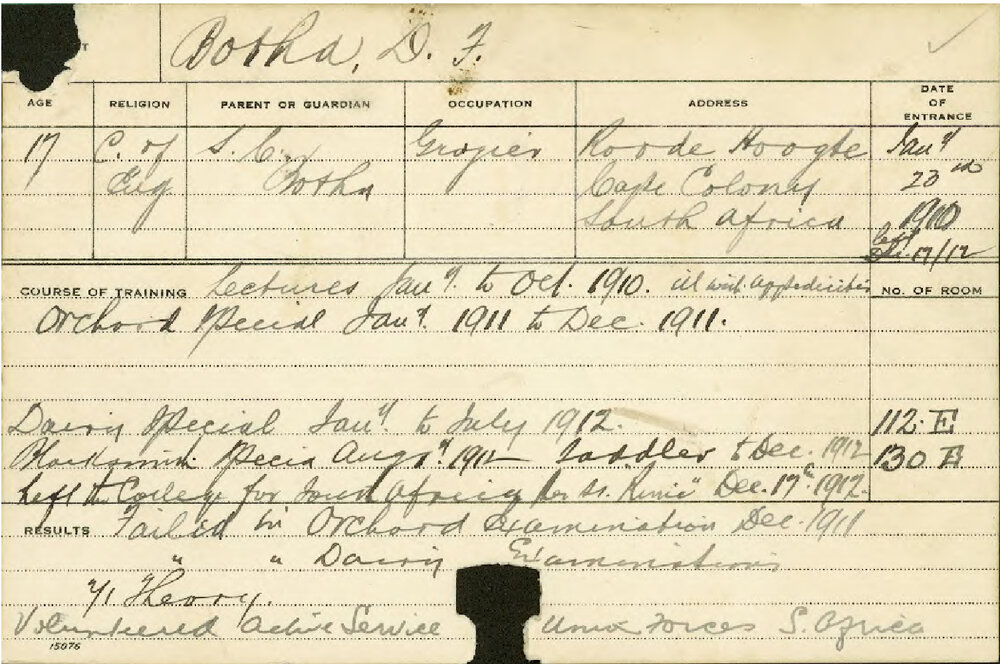 Botha, D. F.
AGE RELIGION PARENT OR GUARDIAN OCCUPATION ADDRESS DATE OF ENTRANCE
17 C. of S. C. Grazier Roode Hoogte Jany
Eng Botha Cape Colony 23rd
South Africa 1910
Left 17/12
COURSE OF TRAINING Lectures Jany. to Oct. 1910. ill with appendicites NO. OF ROOM
Orchard Special Jany. 1911 to Dec. 1911.
Dairy Special Jany. to July 1912. 112. E
Blacksmith Special Augst. 1912 Saddler to Dec. 1912 130 E
Left the College for South Africa per Dec. 17th. 1912.
RESULTS Failed in Orchard Examination Dec. 1911
" " Dairy Examinations
Theory.
Volunteered Active Service Union Forces S. Africa
15076